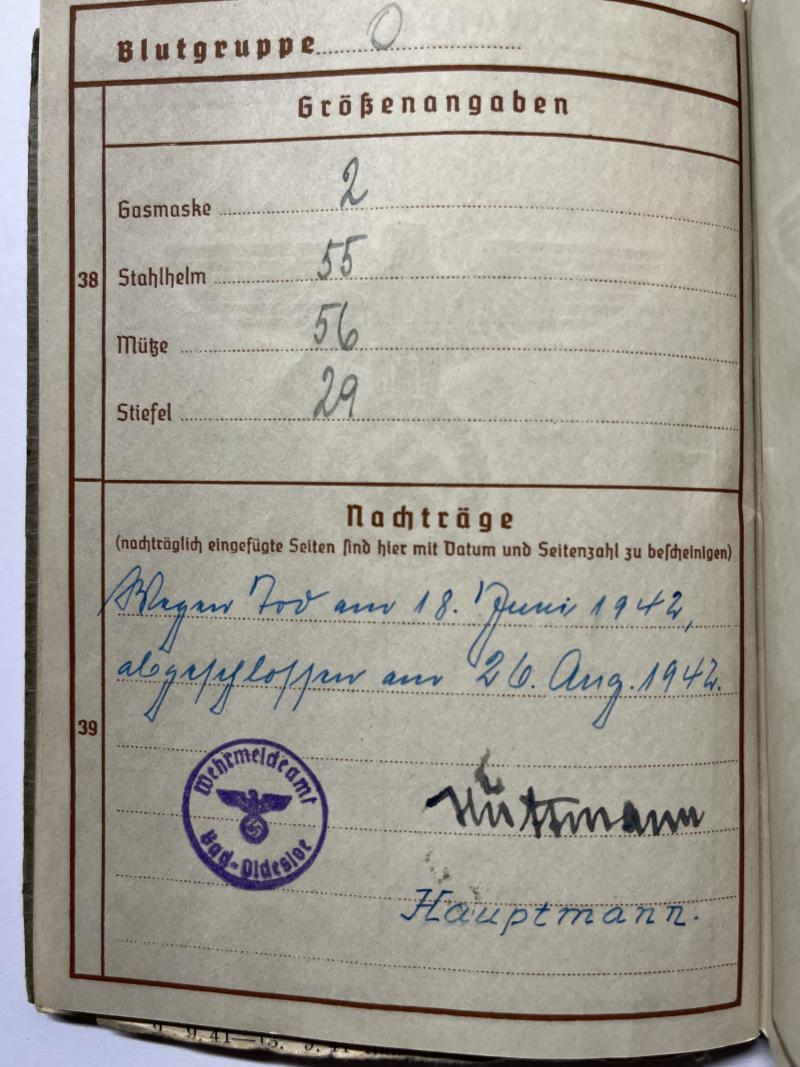 Blutgruppe O
Größenangaben
Gasmaske 2
38
Stahlhelm 55
Mütze 56
Stiefel 29
Nachträge
(nachträglich eingefügte Seiten sind hier mit Datum und Seitenzahl zu bescheinigen)
Wegen Tod am 18. Juni 1942,
abgeschlossen am 26. Aug. 1942.
39
Wehrmeldeamt
Bad-Oldesloe
Hauptmann.